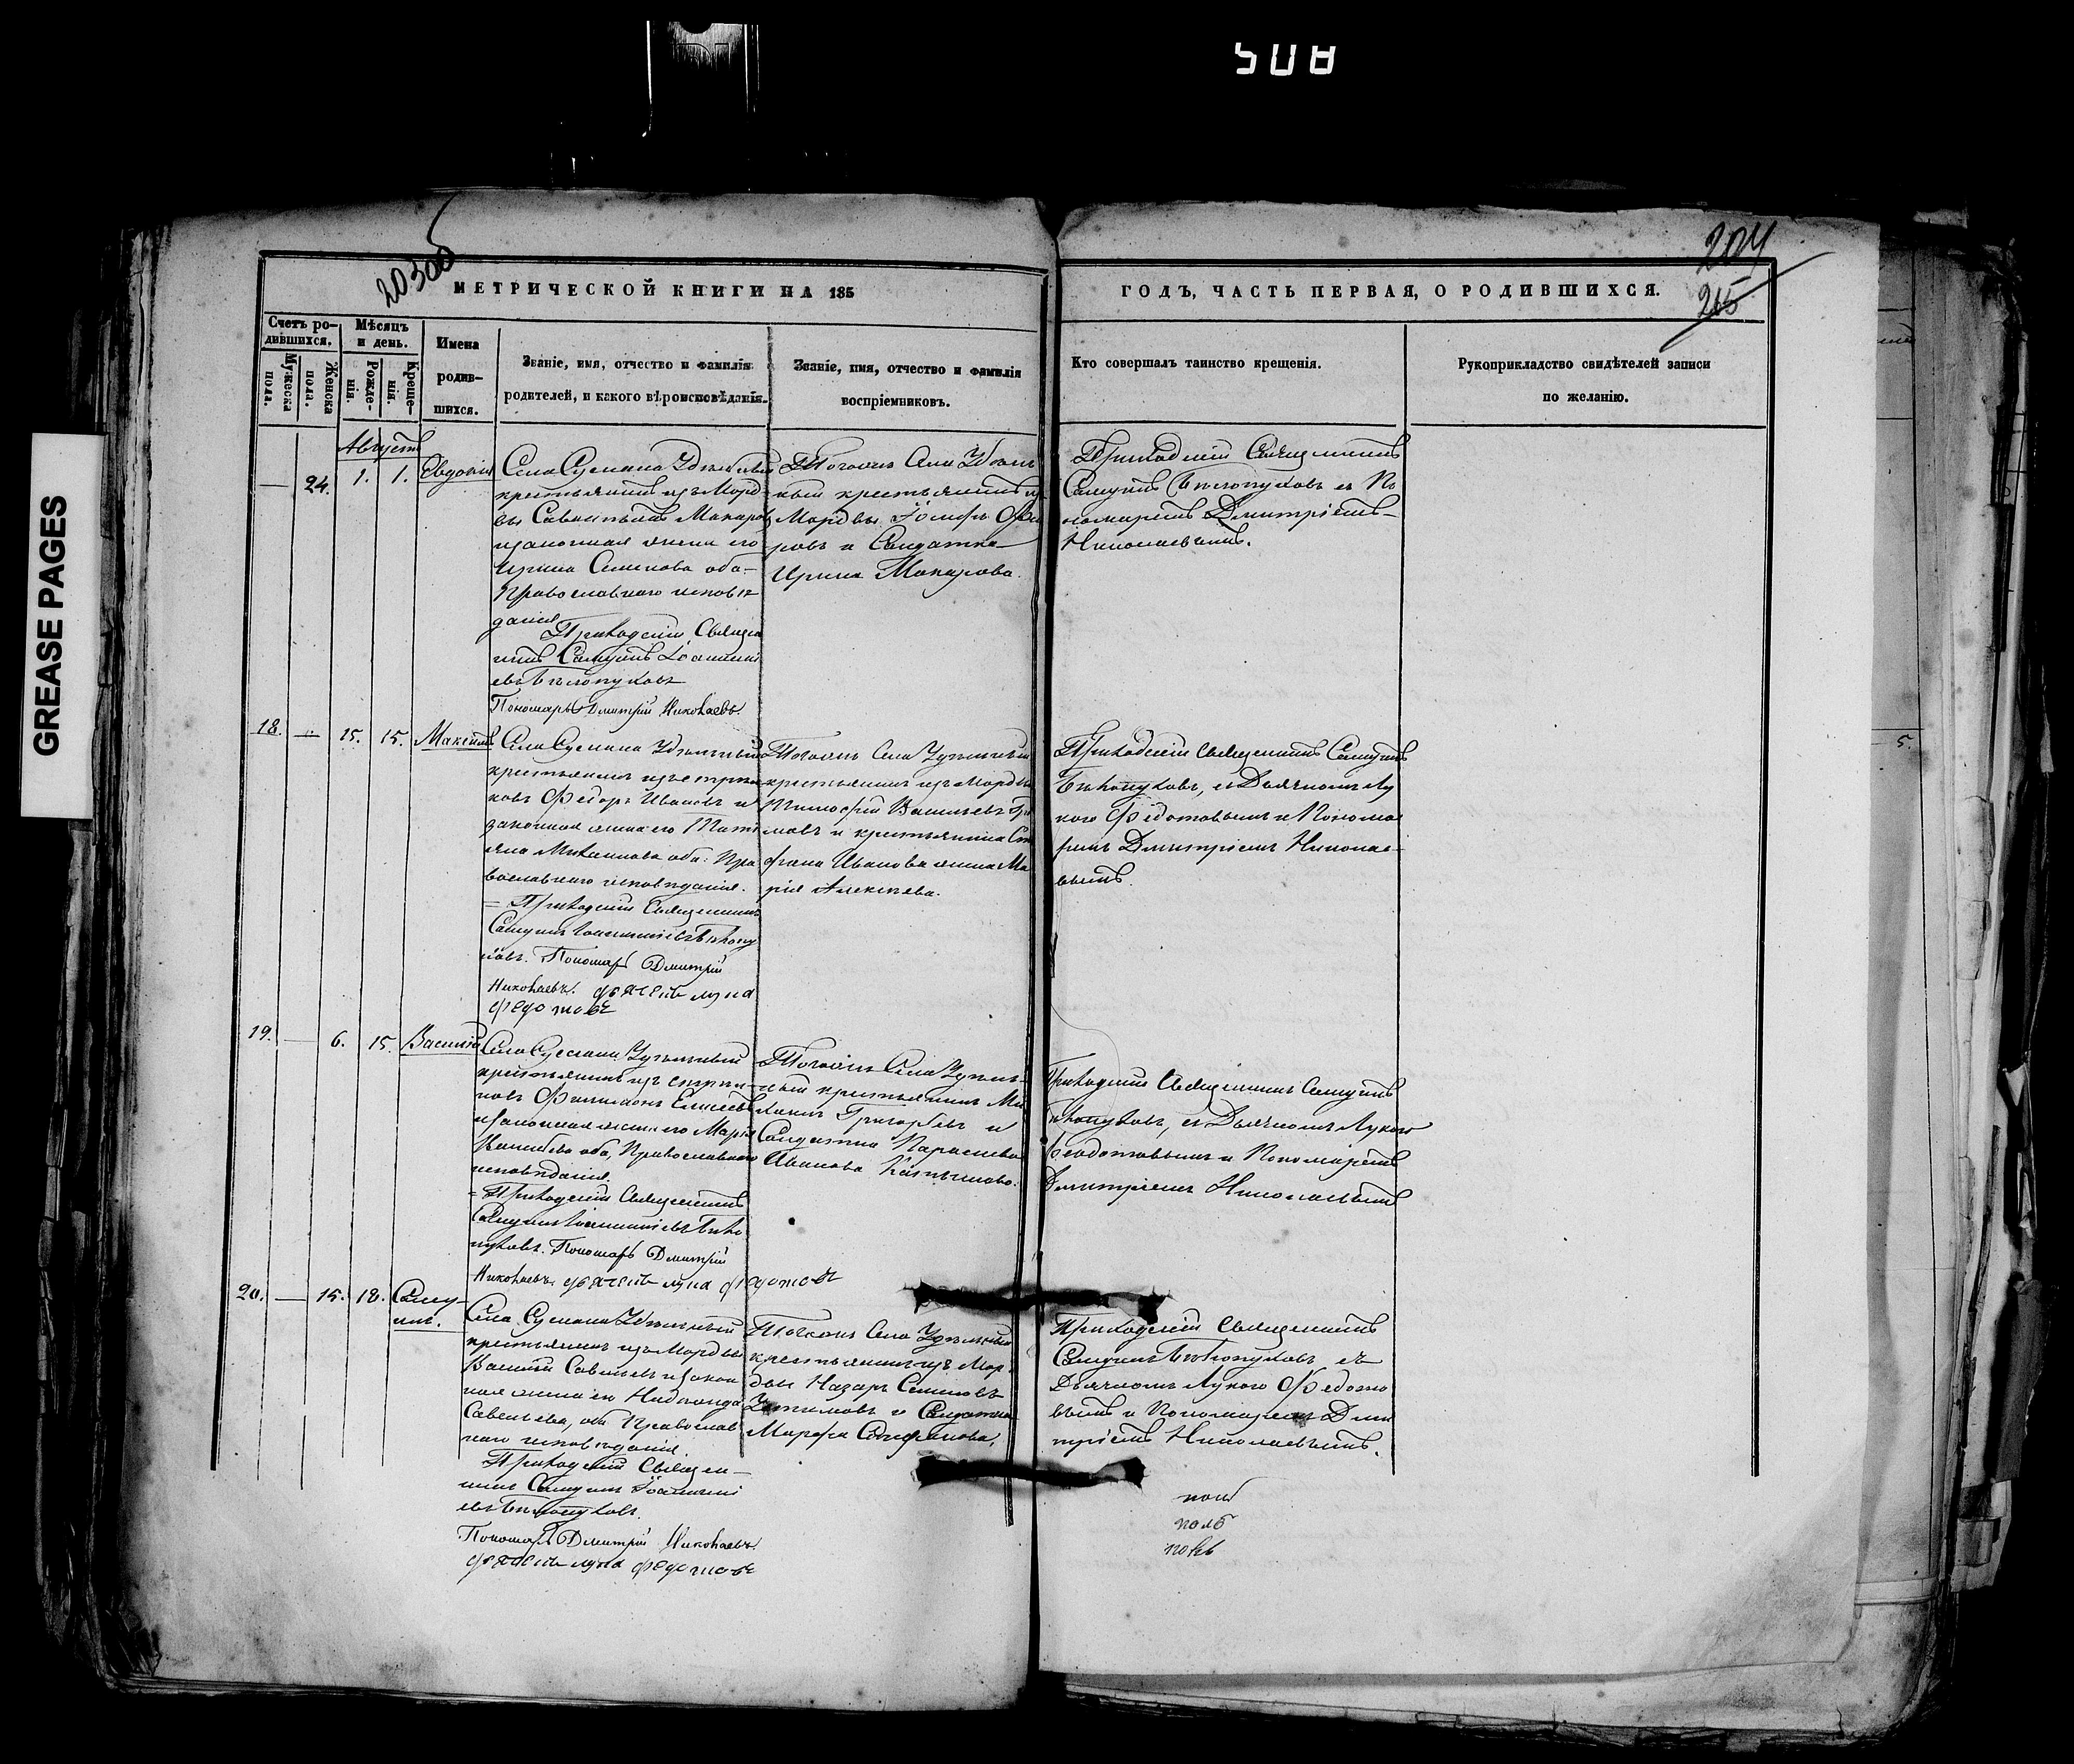 508
GREASE PAGES
203об
204
265
МЕТРИЧЕСКОЙ КНИГИ НА 185
ГОДЪ, ЧАСТЬ ПЕРВАЯ, О РОДИВШИХСЯ.
Счетъ ро-
дившихся.
Мужеска
пола.
Женска
пола.
Мѣсяцъ
и день.
Рожде-
нія.
Креще-
нія.
Имена
родив-
шихся.
Званіе, имя, отчество и фамилія
родителей, и какого вѣроисповѣданія.
Званіе, имя, отчество и фамилія
воспріемниковъ.
Кто совершалъ таинство крещенія.
Рукоприкладство свидѣтелей записи
по желанію.
Августъ
— 24. 1. 1. Евдокія
Села
крестьянинъ изъ Морд
вы Макаровъ
и законная жена его
Ирина Семенова оба
Православнаго исповѣ
данія
Приходскій Священ
никъ Самуилъ Іоанникі
евъ Бѣлопуховъ
Пономарь Дмитрій Николаевъ.
Тогожъ Села Удѣль
ный крестьянинъ изъ
Мордвы
ровъ и Солдатка
Ирина Макарова.
Приходскій Священникъ
Самуилъ Бѣлопуховъ съ По
номаремъ Дмитріемъ
Николаевымъ.
18. — 15. 15. Максимъ
Села Удѣльный
крестьянинъ изъ
ковъ Федоръ Ивановъ и
законная жена его Тать
яна Михайлова оба Пра
вославнаго исповѣданія.
= Приходскій Священникъ
Самуилъ Іоанникіевъ Бѣлопу
ховъ. Пономарь Дмитрій
Николаевъ. дьячекъ лука
федотовъ
Тогожъ Села Удѣльный
крестьянинъ изъ Мордвы
Тимофей Васильевъ
мовъ и крестьянина Сте
фана Иванова жена Ма
рія Алексѣева.
Приходскій Священникъ Самуилъ
Бѣлопуховъ, съ Дьячкомъ Лу
кою Федотовымъ и Понома
ремъ Дмитріемъ Николае-
вымъ.
19. — 6. 15. Василій
Села Удѣльный
крестьянинъ изъ
ковъ Филимонъ Елисеевъ
и законная жена его Марія
оба, Православнаго
исповѣданія.
= Приходскій Священникъ
Самуилъ Іоанникіевъ Бѣло
пуховъ. Пономарь Дмитрій
Николаевъ. дьячекъ лука федотовъ
Тогожъ Села Удѣль-
ный крестьянинъ Ми
хаилъ Григорьевъ и
Солдатка Параскева
Иванова
Приходскій Священникъ Самуилъ
Бѣлопуховъ, съ Дьячкомъ Лукою
Феодотовымъ и Пономаремъ
Дмитріемъ Николаевымъ
20. — 15. 18. Саму-
илъ.
Села Удѣльный
крестьянинъ изъ Мордвы
Василій Савельевъ и закон
ная жена его
Савельева, оба Православ
наго исповѣданія.
Приходскій Священ-
никъ Самуилъ Іоанникі
евъ Бѣлопуховъ.
Пономарь Дмитрій Николаевъ
дьячекъ лука федотовъ
Тогожъ Села Удѣльный
крестьянинъ изъ Мор
двы Назаръ Семеновъ
и Солдатка
Марфа Стефанова.
Приходскій Священникъ
Самуилъ Бѣлопуховъ съ
Дьячкомъ Лукою Федото
вымъ и Пономаремъ Дми
тріемъ Николаевымъ.